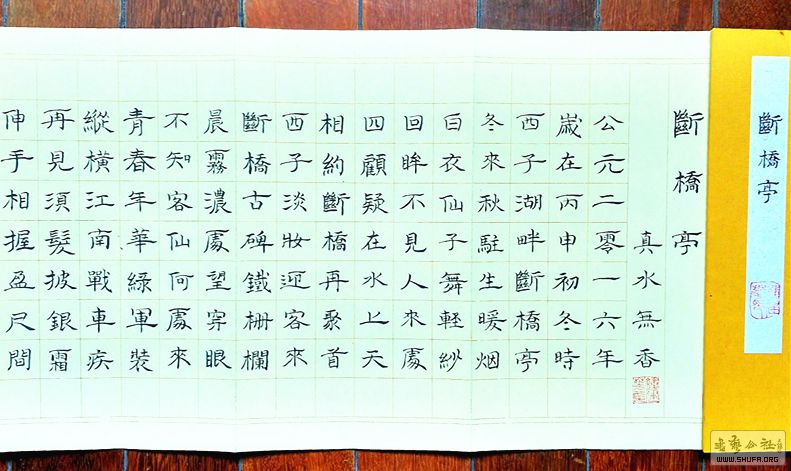 斷橋亭
斷橋亭
真水無香
公元二零一六年
歲在丙申初冬時
西子湖畔斷橋亭
冬來秋駐生暖烟
白衣仙子舞輕紗
回眸不見人來處
四顧疑在水上天
相約斷橋再聚首
西子淡妝迎客來
斷橋古碑鐵柵欄
晨霧濃處望穿眼
不知客仙何處來
青春年華綠軍裝
縱橫江南戰車疾
再見須髮披銀霜
伸手相握盈尺間
書藝公社
WWW.SHUFA.ORG